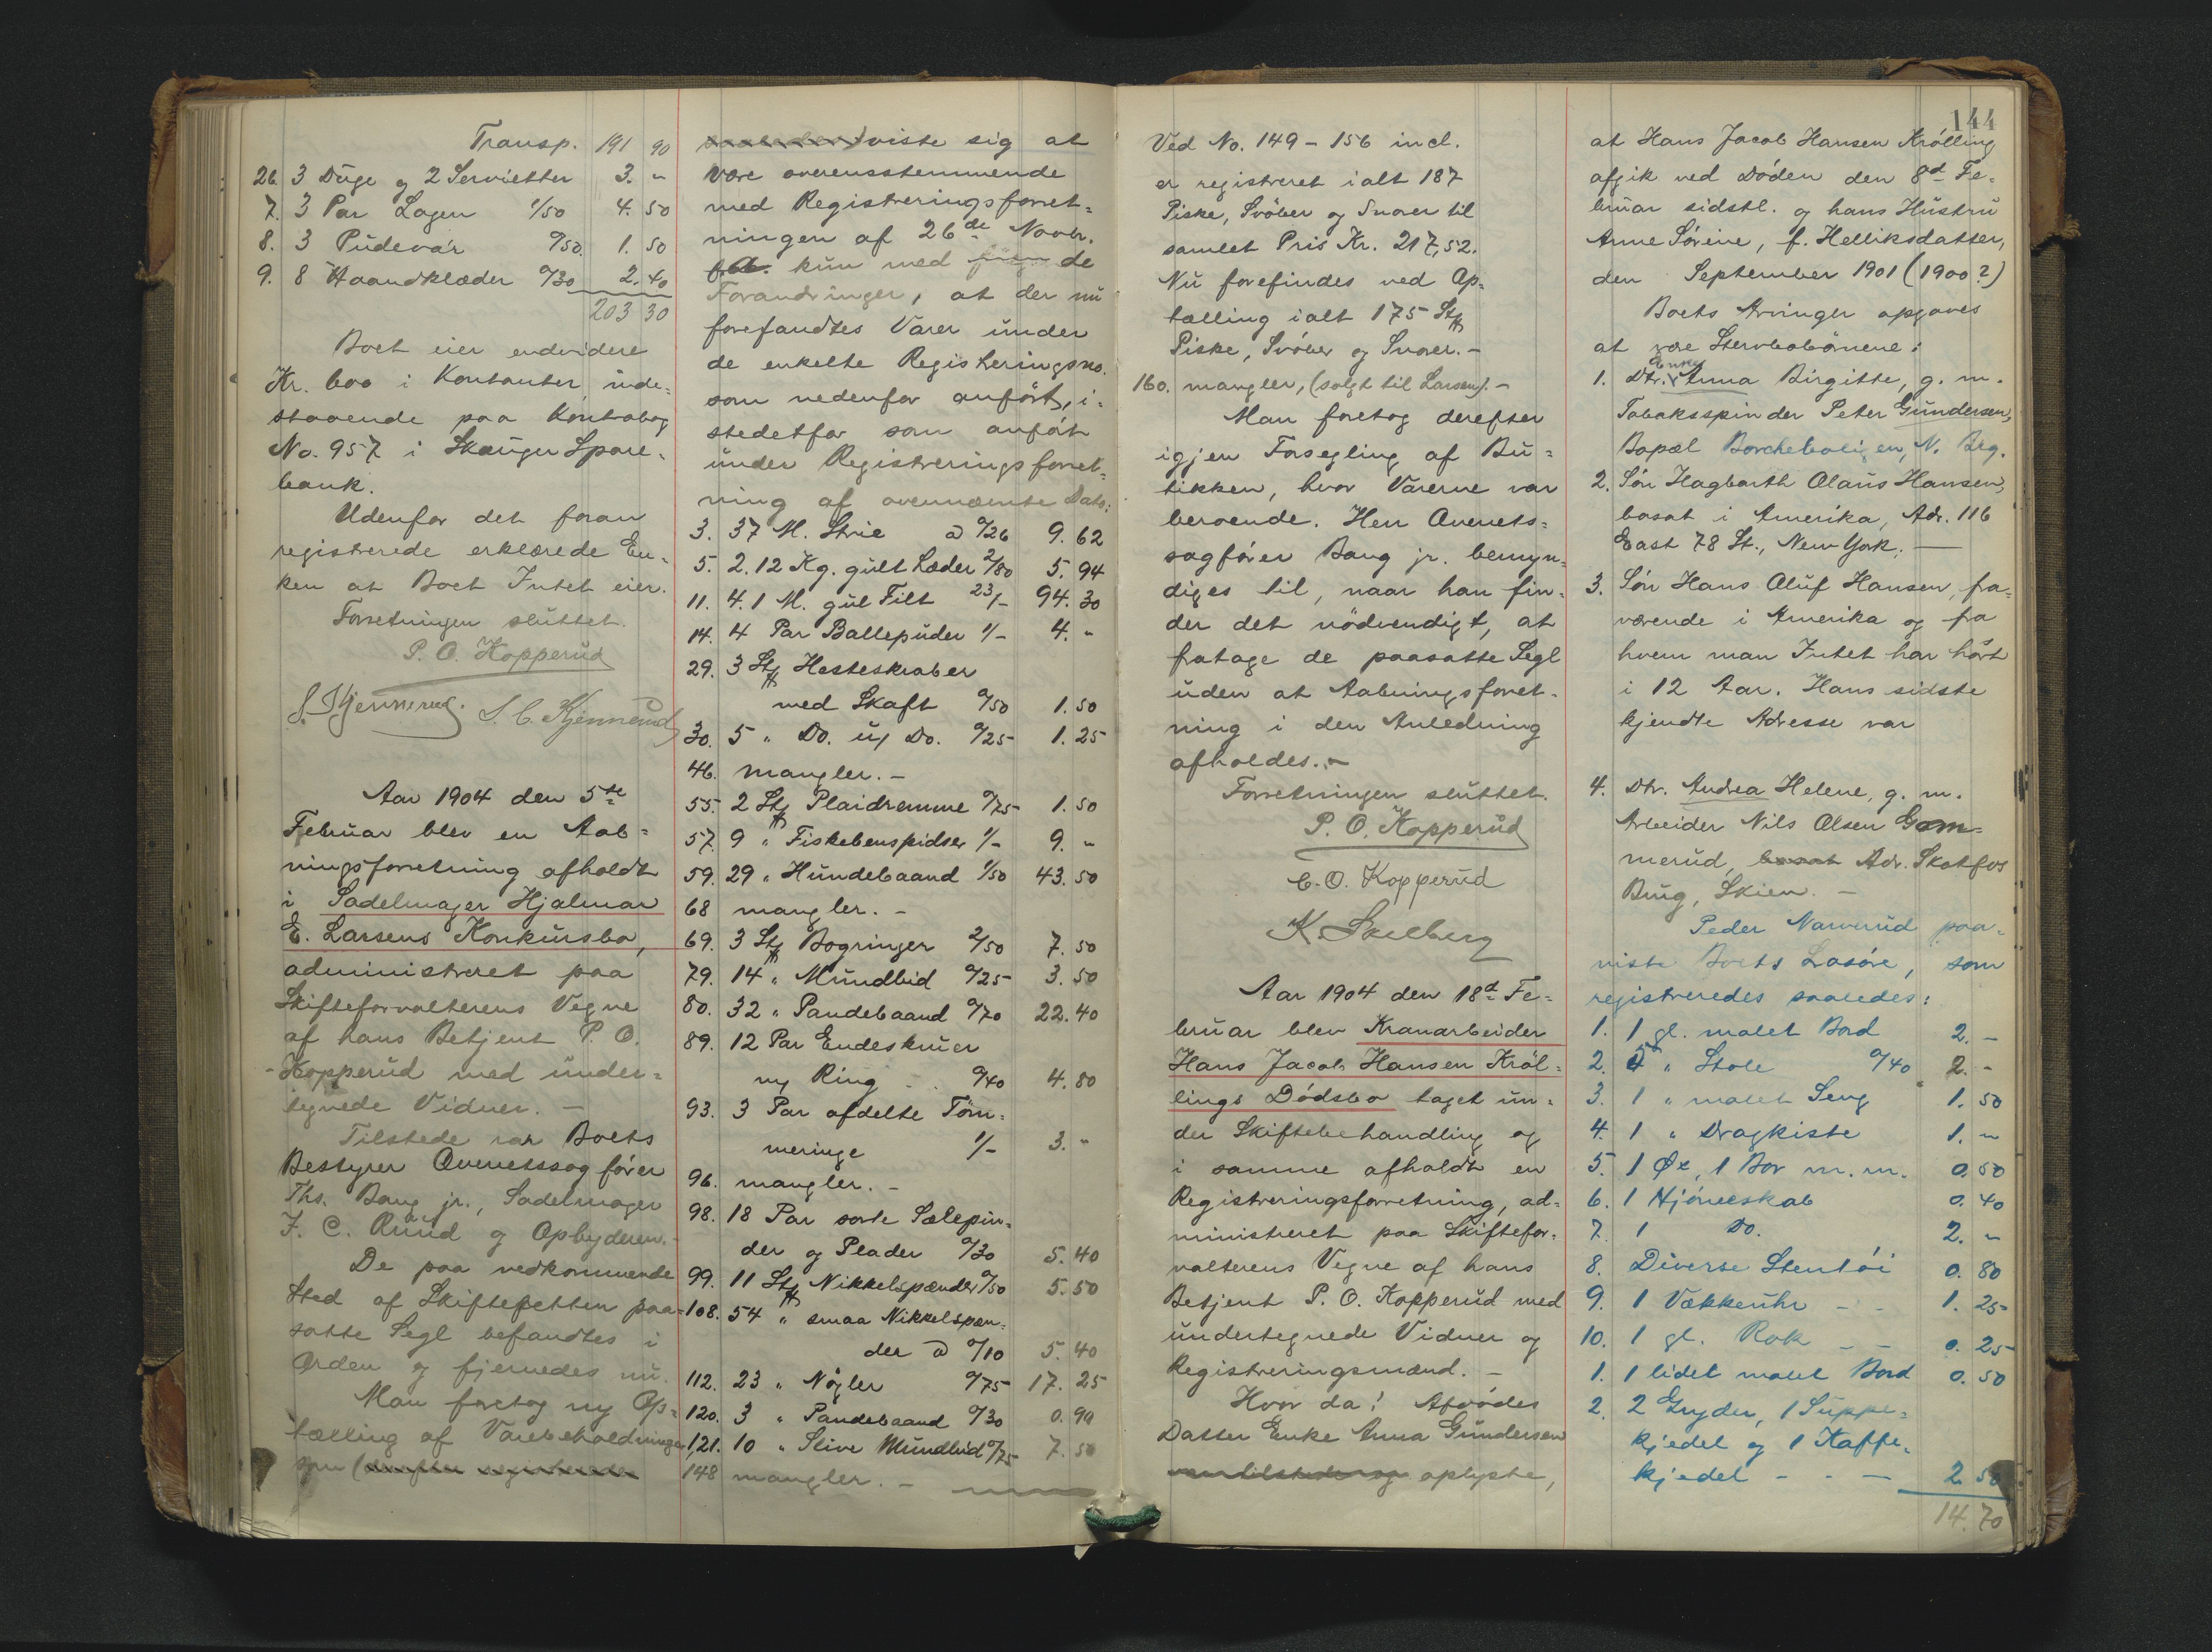 Transp. 191 90
26. 3 Duge og 2 Servietter 3. "
7. 3 Par Lagen 1/50 4. 50
8. 3 Pudevar 0/50. 1. 50
9. 8 Haandklæder 0/30 2. 40
203 30
Boet eier endvidere
Kr. 600 i Kontanter inde=
staaende paa Kontrabog
No. 957 i Skauger Spare=
bank.
Udenfor det foran
registrerede erklærede En=
ken at Boet Intet eier.
Forretningen sluttet.
P. O. Kopperud
S. Kjennerud. L. C. Kjennerud
Aar 1904 den 5te
Februar blev en Aab=
ningsforretning afholdt
i Sadelmager Hjalmar
E. Larsens Konkursbo,
administreret paa
Skifteforvalterens Vegne
af hans Betjent P. O.
Kopperud med under=
tegnede Vidner. —
Tilstede var Boets
Bestyrer Overretssagfører
Ths. Bang jr., Sadelmager
F. C. Ruud og Opbyderen.
De paa vedkommende
Sted af Skifteretten paa=
satte Segl befandtes i
Orden og fjernedes nu.
Man foretog ny Op=
tælling af Varebeholdningen
som (derefter registrerede
viste sig at
være overensstemmende
med Registreringsforret=
ningen af 26de Novbr.
f.A. kun med de
Forandringer, at der nu
forefandtes Varer under
de enkelte Registreringsno.
som nedenfor anført, i=
stedetfor som anført
under Registreringsforret=
ning af ovennævnte Dato:
3. 37 M. Strie a 0/26 9. 62
5. 2.12 Kg. gult Læder 2/80 5. 94
11. 4.1 M. gul Filt 23/- 94. 30
14. 4 Par Ballepuder 1/- 4. "
29. 3 Stk Hesteskraber
med Skaft 0/50 1. 50
30. 5 " Do. u/ Do. 0/25 1. 25
46. mangler. —
55. 2 Stk Plaidremme 0/75 1. 50
57. 9 " Fiskebenspidser 1/- 9. "
59. 29 " Hundebaand 1/50 43. 50
68 mangler. —
69. 3 Stk Bogringer 2/50 7. 50
79. 14 " Mundbid 0/25 3. 50
80. 32 " Pandebaand 0/70 22. 40
89. 12 Par Endeskruer
m/ Ring . . 0/40 4. 80
93. 3 Par afdelte Töm=
meringe 1/- 3. "
96. mangler. —
98. 18 Par sorte Sælepin=
der og Plader 0/30 5. 40
99. 11 Stk Nikkelspænder 0/50 5. 50
108. 54 " smaa Nikkelspæn=
der a 0/10 5. 40
112. 23 " Nøgler 0/75 17. 25
120. 3 " Pandebaand 0/30 0. 90
1,21. 10 " Stive Mundbid 0/75 7. 50
148 mangler. —
Ved No. 149 - 156 incl.
er registreret ialt 187
Piske, Svöber og Snoer til
samlet Pris Kr. 217,52.
Nu forefindes ved Op=
tælling ialt 175 Stk
Piske, Svöber og Snoer. —
160. mangler, (solgt til Larsen). —
Man foretog derefter
igjen Forsegling af Bu=
tikken, hvor Varerne var
beroende. Herr Overrets=
sagfører Bang jr. bemyn=
diges til, naar han fin=
der det nödvendigt, at
fratage de paasatte Segl
uden at Aabningsforret=
ning i den Anledning
afholdes. —
Forretningen sluttet.
P. O. Kopperud
C. O. Kopperud
K. Skelberg
Aar 1904 den 18d Fe=
bruar blev Kranarbeider
Hans Jacob Hansen Kröl=
lings Dödsbo taget un=
der Skiftebehandling og
i samme afholdt en
Registreringsforretning, ad=
ministreret paa Skiftefor=
valterens Vegne af hans
Betjent P. O. Kopperud med
undertegnede Vidner og
Registreringsmænd. —
Hvor da: Afdödes
Datter Enke Anna Gundersen
var tilstede og oplyste,
144
at Hans Jacob Hansen Krölling
afgik ved Döden den 8d Fe=
bruar sidstl. og hans Hustru
Anne Sörine, f. Helliksdatter,
den September 1901 (1900?)
Boets Arvinger opgaves
at være Stervbobörnene:
Enke
1. Dtr. Anna Birgitte, g. m.
Tobaksspinder Peter Gundersen,
Bopæl Borcheboligen, N. Brg.
2. Sön Hagbarth Olaus Hansen,
bosat i Amerika, Adr. 116
East 78 St., New York. —
3. Sön Hans Oluf Hansen, fra=
værende i Amerika og fra
hvem man Intet har hört
i 12 Aar. Hans sidste
kjendte Adresse var
4. Dtr. Andrea Helene, g. m.
Arbeider Nils Olsen Gam=
merud, bosat Adr. Skotfos
Brug, Skien. —
Peder Narverud paa=
viste Boets Lösöre, som
registreredes saaledes:
1. 1 gl. malet Bord 2. -
2. 5 " Stole 0/40 2. -
3. 1 " malet Seng 1. 50
4. 1 " Dragkiste 1. "
5. 1 Øx, 1 Bor m. m. 0. 50
6. 1 Hjörneskab 0. 40
7. 1 Do. 2. "
8. Diverse Stentöi 0. 80
9. 1 Vækkeruhr - - 1. 25
10. 1 gl. Rok - - 0. 25
1. 1 lidet malet Bord 0. 50
2. 2 Gryder, 1 Suppe=
kjedel og 1 Kaffe=
kjedel - - - 2 50
14. 70